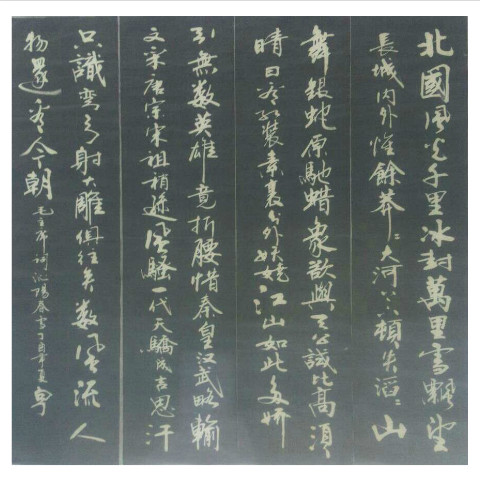 北國風光千里冰封萬里雪飄望
長城内外惟餘莽〻大河上下頓失滔〻山
舞銀蛇原馳蠟象欲與天公試比高須
晴日看红装素裹分外妖嬈江山如此多娇
引無数英雄竟折腰惜秦皇汉武略輸
文采唐宗宋祖稍遜風騷一代天驕成吉思汗
只識弯弓射大雕俱往矣数風流人
物還看今朝
毛主席词沁园春雪丁酉年夏